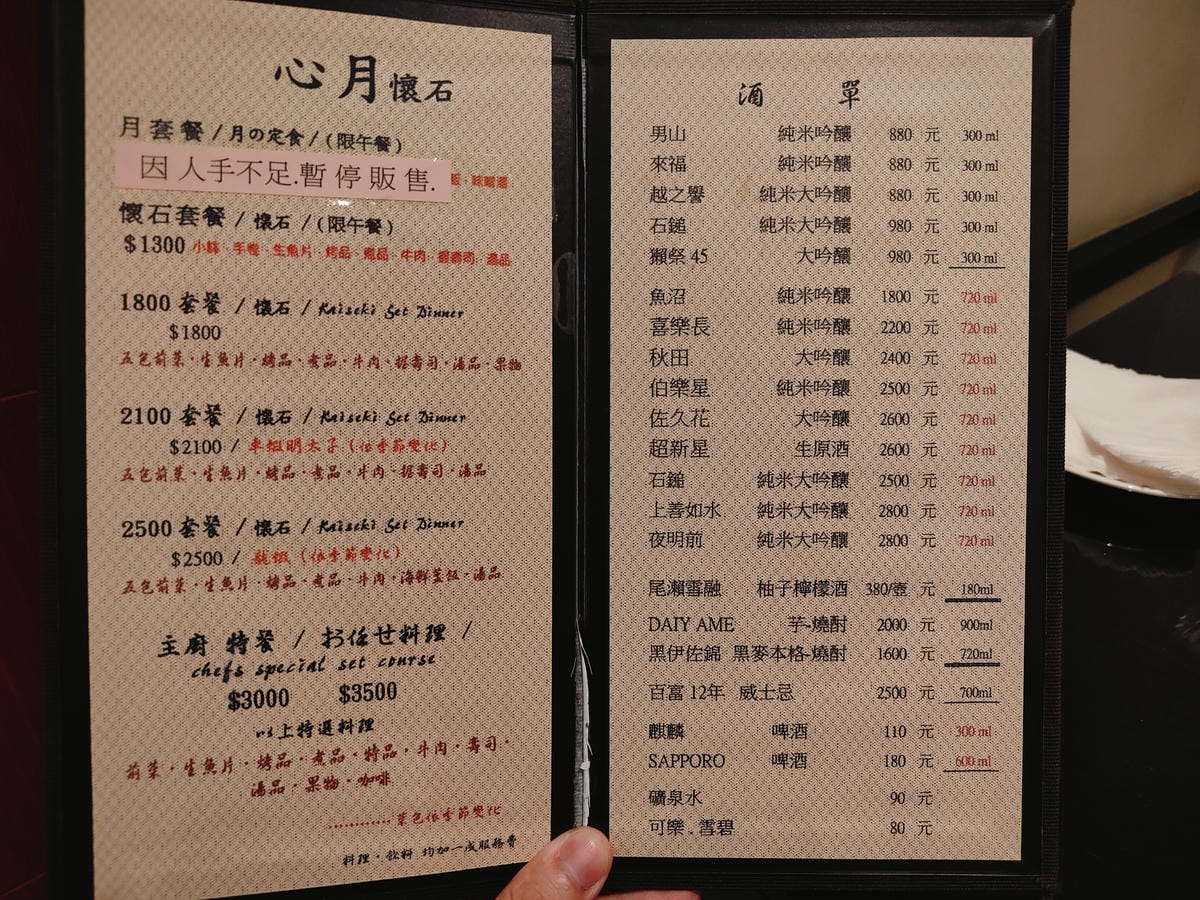 心月懷石
月套餐 / 月の定食 / (限午餐)
因人手不足.暫停販售.
飯．味噌湯
懷石套餐 / 懷石 / (限午餐)
$1300 小缽．手卷．生魚片．烤品．煮品．牛肉．握壽司．湯品
1800 套餐 / 懷石 / Kaiseki Set Dinner
$1800
五色前菜．生魚片．烤品．煮品．牛肉．握壽司．湯品．果物
2100 套餐 / 懷石 / Kaiseki Set Dinner
$2100 / 車蝦明太子 (依季節變化)
五色前菜．生魚片．烤品．煮品．牛肉．握壽司．湯品
2500 套餐 / 懷石 / Kaiseki Set Dinner
$2500 / 龍蝦 (依季節變化)
五色前菜．生魚片．烤品．煮品．牛肉．海鮮釜飯．湯品
主廚 特餐 / お任せ料理 /
chefs special set course
$3000 $3500
以上特選料理
前菜．生魚片．烤品．煮品．特品．牛肉．壽司．
湯品．果物．咖啡
............菜色依季節變化
料理．飲料 均加一成服務費
酒 單
男山 純米吟釀 880 元 300 ml
來福 純米吟釀 880 元 300 ml
越之譽 純米大吟釀 880 元 300 ml
石鎚 純米大吟釀 980 元 300 ml
獺祭 45 大吟釀 980 元 300 ml
魚沼 純米吟釀 1800 元 720 ml
喜樂長 純米吟釀 2200 元 720 ml
秋田 大吟釀 2400 元 720 ml
伯樂星 純米吟釀 2500 元 720 ml
佐久花 大吟釀 2600 元 720 ml
超新星 生原酒 2600 元 720 ml
石鎚 純米大吟釀 2500 元 720 ml
上善如水 純米大吟釀 2800 元 720 ml
夜明前 純米大吟釀 2800 元 720 ml
尾瀨雪融 柚子檸檬酒 380/壺 元 180ml
DAIY AME 芋-燒酎 2000 元 900ml
黑伊佐錦 黑麥本格-燒酎 1600 元 720ml
百富 12年 威士忌 2500 元 700ml
麒麟 啤酒 110 元 300 ml
SAPPORO 啤酒 180 元 600 ml
礦泉水 90 元
可樂．雪碧 80 元